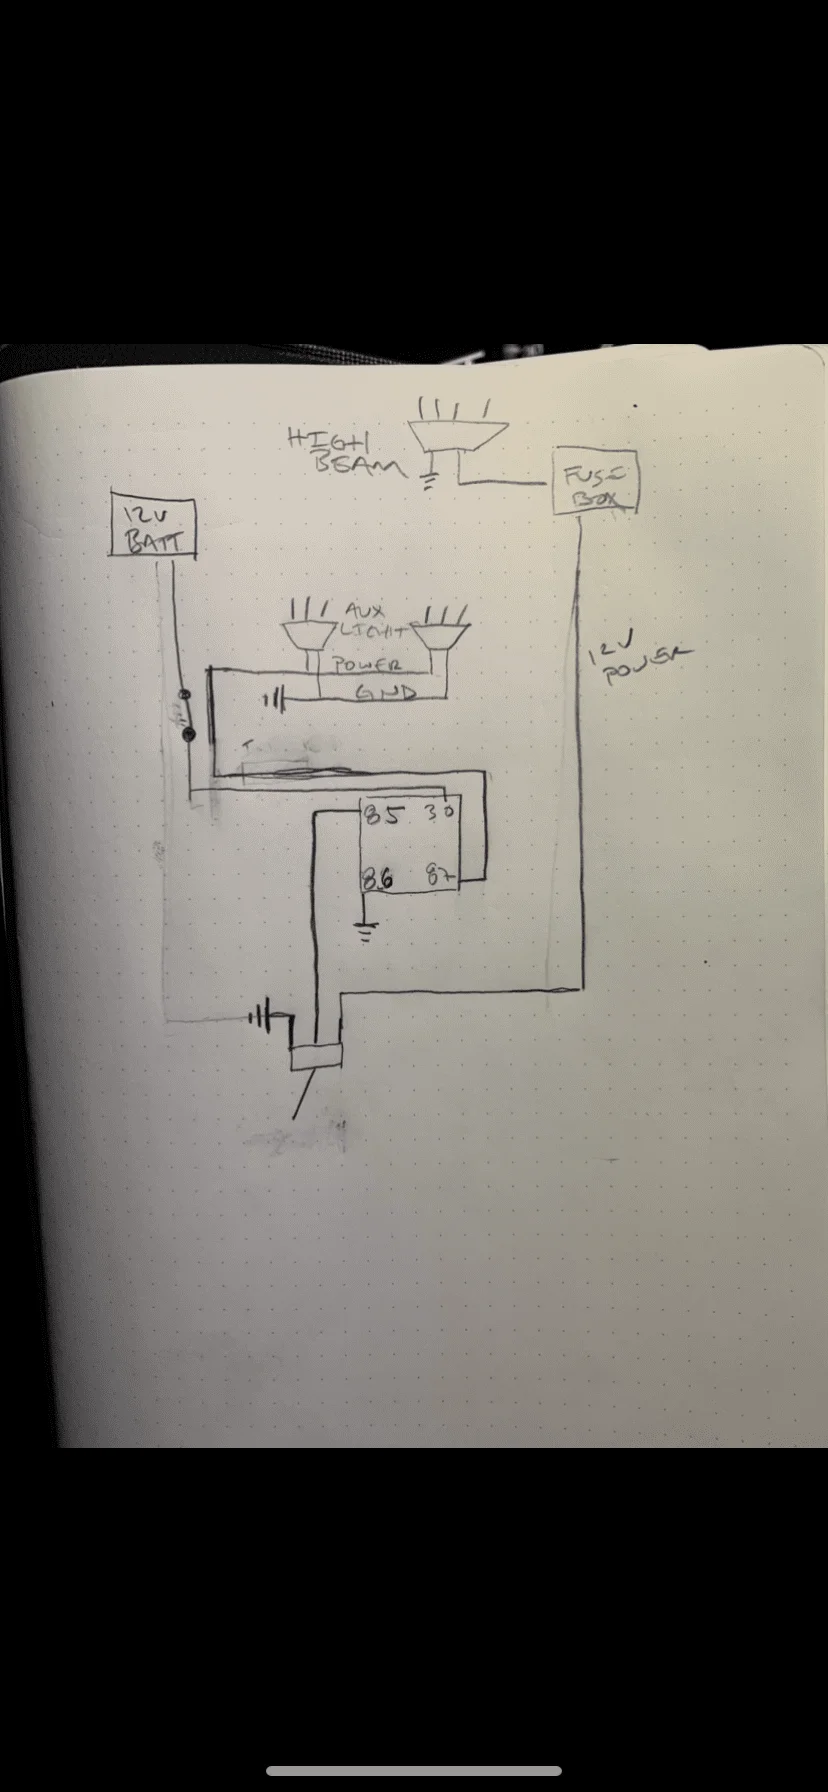 HIGH
BEAM
FUSE
BOX
12V
BATT
AUX
LIGHT
POWER
GND
12V
POWER
85 30
86 87